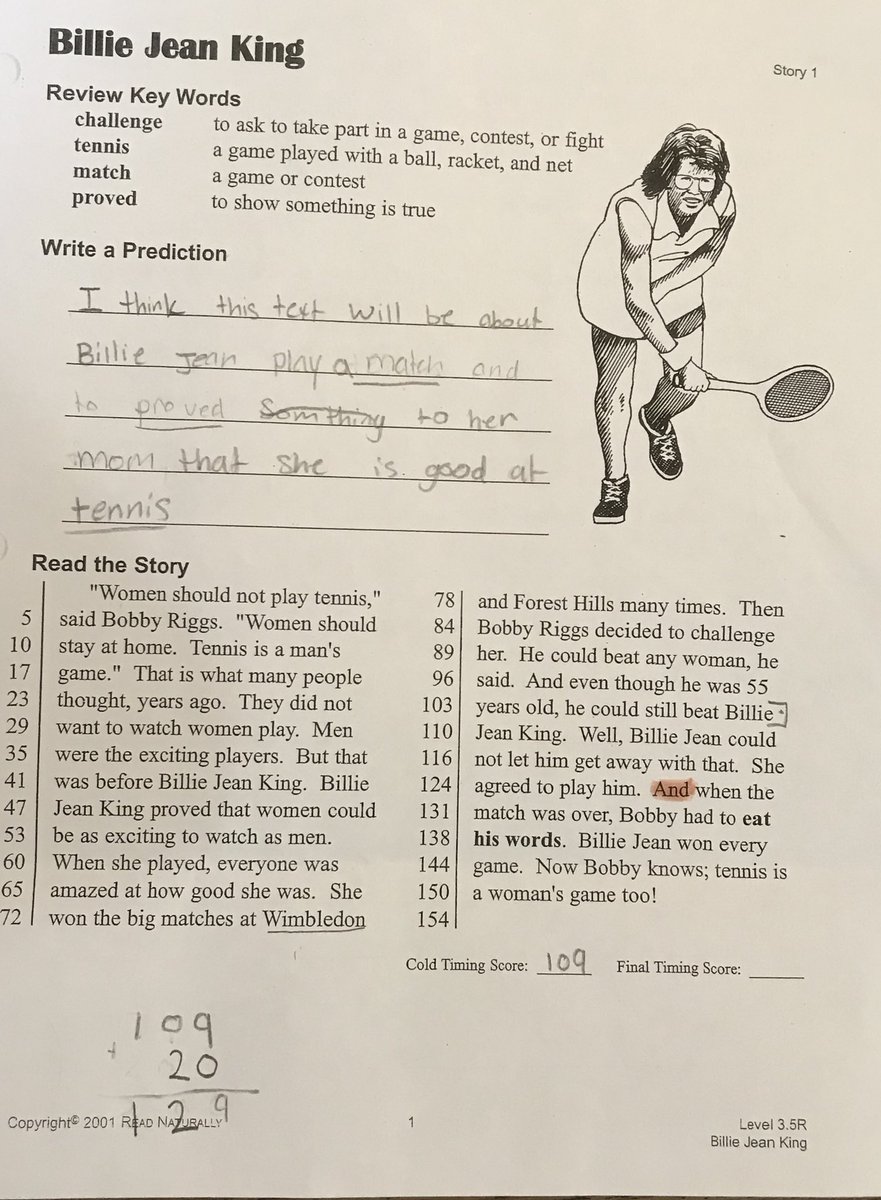 Billie Jean King
Story 1
Review Key Words
challenge to ask to take part in a game, contest, or fight
tennis a game played with a ball, racket, and net
match a game or contest
proved to show something is true
Write a Prediction
I think this text will be about
Billie Jean play a match and
to proved Somthing to her
mom that she is good at
tennis
Read the Story
"Women should not play tennis,"
5 said Bobby Riggs. "Women should
10 stay at home. Tennis is a man's
17 game." That is what many people
23 thought, years ago. They did not
29 want to watch women play. Men
35 were the exciting players. But that
41 was before Billie Jean King. Billie
47 Jean King proved that women could
53 be as exciting to watch as men.
60 When she played, everyone was
65 amazed at how good she was. She
72 won the big matches at Wimbledon
78 and Forest Hills many times. Then
84 Bobby Riggs decided to challenge
89 her. He could beat any woman, he
96 said. And even though he was 55
103 years old, he could still beat Billie
110 Jean King. Well, Billie Jean could
116 not let him get away with that. She
124 agreed to play him. And when the
131 match was over, Bobby had to eat
138 his words. Billie Jean won every
144 game. Now Bobby knows; tennis is
150 a woman's game too!
154
Cold Timing Score: 109 Final Timing Score:
109
+ 20
129
Copyright© 2001 READ NATURALLY
1
Level 3.5R
Billie Jean King